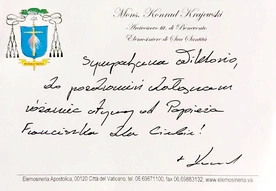 Mons. Konrad Krajewski
Arcivescovo tit. di Benevento
Elemosiniere di Sua Santità
Sympatyczna Wiktorio,
do pozdrowień dołączam
różaniec otrzymany od Papieża
Franciszka dla Ciebie!
Elemosineria Apostolica, 00120 Città del Vaticano; tel. 06.69871100; fax. 06.69883132; www.elemosineria.va